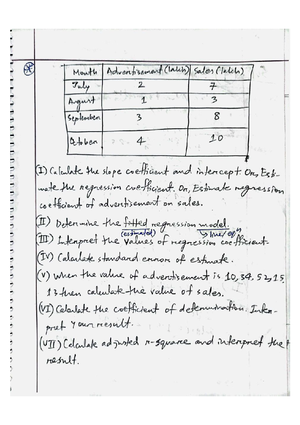 Month Advertisement (lakh) Sales (lakh)
July 2 7
August 1 3
September 3 8
October 4 10
(I) Calculate the slope coefficient and intercept. On, Esti-
mate the regression coefficient. On, Estimate regression
coefficient of advertisement on sales.
(II) Determine the fitted regression model.
(estimated) line/
(III) Interpret the values of regression coefficient.
(IV) Calculate standard error of estimate.
(V) When the value of advertisement is 10, 34, 52, 15
13 then calculate the value of sales.
(VI) Calculate the coefficient of determination. Inter-
pret your result.
(VII) Calculate adjusted r-square and interpret the
result.